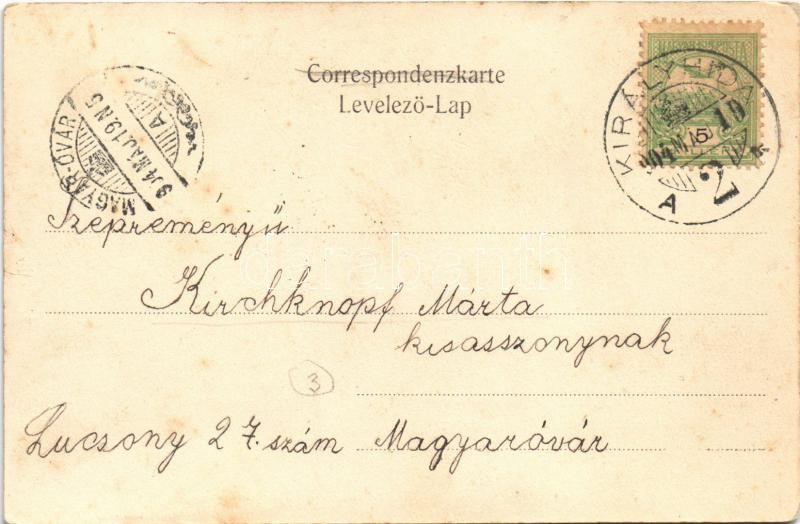 Correspondenzkarte
Levelező-Lap
MAGYAR-ÓVÁR
904 MÁJ. 19. N5
A
KIRÁLYHIDA
904 MÁJ 19
A
2
5
Szepreményű
Kirchknopf Márta
kisasszonynak
3
Lucsony 27. szám Magyaróvár
darabanth